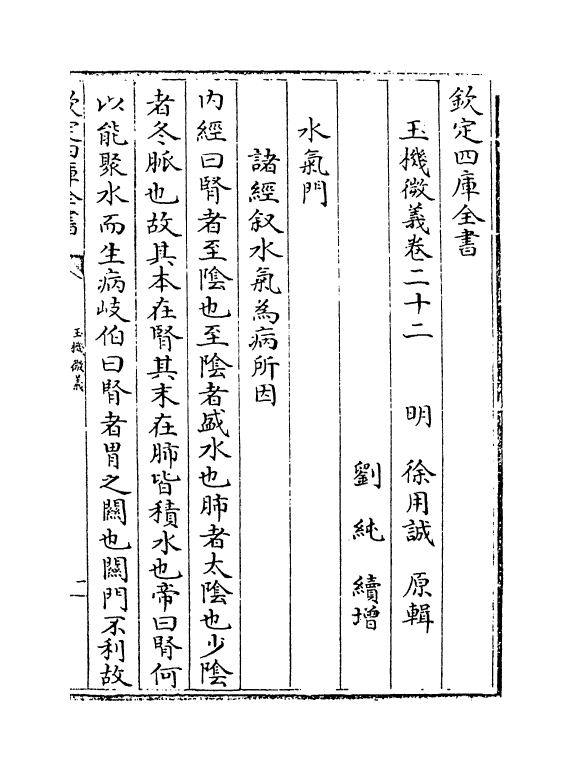 欽定四庫全書
玉機微義卷二十二 明 徐用誠 原輯
劉純 續增
水氣門
諸經叙水氣為病所因
内經曰腎者至隂也至隂者盛水也肺者太隂也少隂
者冬脈也故其本在腎其末在肺皆積水也帝曰腎何
以能聚水而生病岐伯曰腎者胃之關也關門不利故
欽定四庫全書
玉機微義